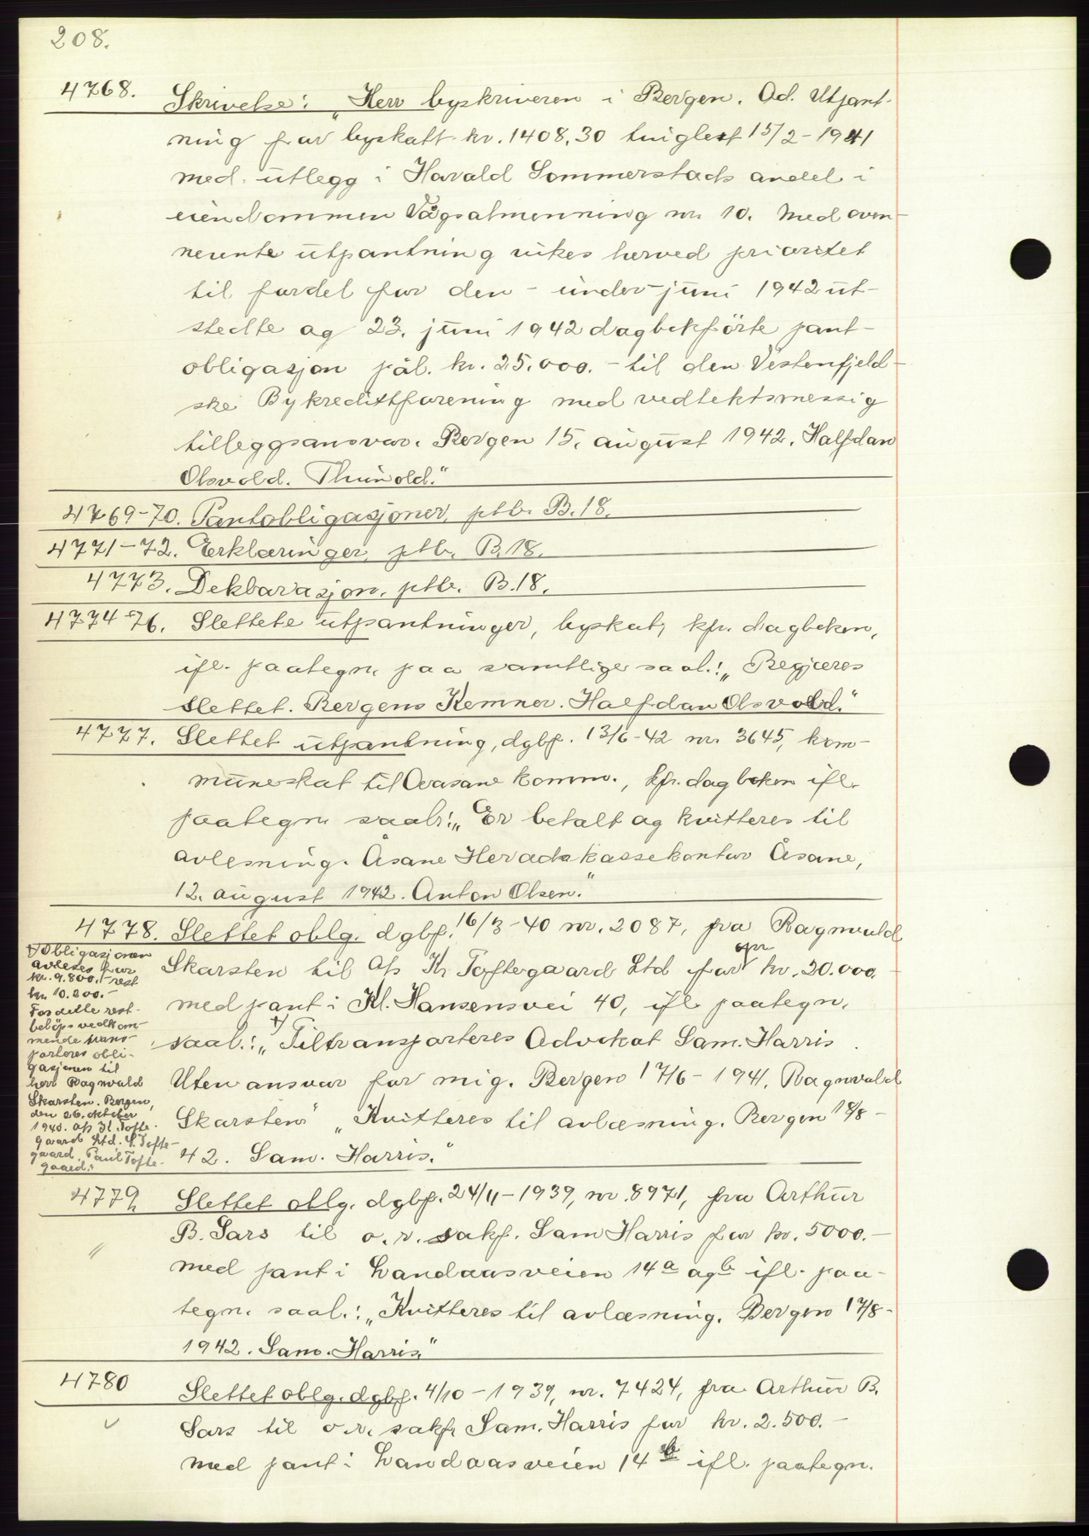 208.
4768. Skrivelse: "Herr byskriveren i Bergen. Ad. Utpant-
ning for byskatt kr. 1408,30 tinglest 15/2-1941
med utlegg i Harald Sommerstads andel i
eiendommen Vågsalmenning nr. 10. Med oven-
nevnte utpantning vikes herved prioritet
til fordel for den - under juni 1942 ut-
stedte og 23. juni 1942 dagbokförte pant-
obligasjon pål. kr. 25.000.- til den Vestenfjeld-
ske Bykreditforening med vedtektsmessig
tilleggsansvar. Bergen 15. august 1942. Halfdan
Olsvold. Thinold."
4769-70. Pantobligasjoner, ptb. B.18.
4771-72. Erklæringer, ptb. B.18.
4773. Deklarasjon, ptb. B.18.
4774-76. Slettete utpantninger, byskat, kfr. dagboken,
ifl. paategn. paa samtlige saal.: "Begjæres
slettet. Bergens Kemner. Halfdan Olsvold."
4777. Slettet utpantning, dgbf. 13/6-42 nr. 3645, kom-
muneskat til Aasane komm., kfr. dagboken ifl.
paategn. saal.: "Er betalt og kvitteres til
avlesning. Åsane Heradskassekontor Åsane,
12. august 1942. Anton Olsen."
4778. Slettet oblg. dgbf. 16/3-40 nr. 2087, fra Ragnvald
Skarsten til A/s Kr. Toftegaard Ltd for opr kr. 20.000
med pant i Kl. Hansensvei 40, ifl. paategn.
saal.: +) "Tiltransporteres Advokat Sam. Harris.
Uten ansvar for mig. Bergen 17/6-1941. Ragnvald
Skarsten" "Kvitteres til avlæsning. Bergen 18/8-
42. Sam. Harris."
+) Obligasjonen
avleses for
kr. 9.800.- rest
kr. 10.200.-
For dette rest-
beløps vedkom-
mende trans-
porteres obli-
gasjonen til
herr Ragnvald
Skarsten. Bergen,
den 26. oktober
1940. A/s Kr. Tofte-
gaard Ltd. S. Tofte-
gaard. Paul Tofte-
gaard."
4779 Slettet oblg. dgbf. 24/11-1939, nr. 8971, fra Arthur
B. Sars til o.r. sakf. Sam Harris for kr. 5000.-
med pant i Landaasveien 14a og b ifl. paa-
tegn. saal.: "Kvitteres til avlæsning. Bergen 17/8-
1942. Sam. Harris."
4780 Slettet oblg. dgbf. 4/10-1939, nr. 7424, fra Arthur B.
Sars til o.r. sakf. Sam. Harris for kr. 2.500.-
med pant i Landaasveien 14 b ifl. paategn.